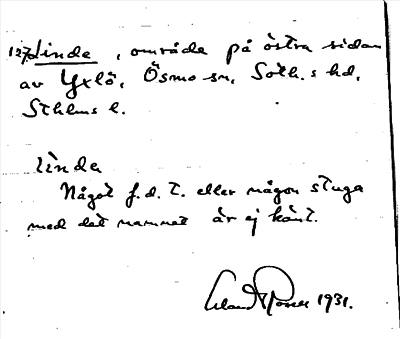 127 Linda, område på östra sidan
av Yxlö, Ösmo sn, Soth.s hd,
Sthlms l.
lìnda
Något f.d. t. eller någon stuga
med det namnet är ej känt.
1931.